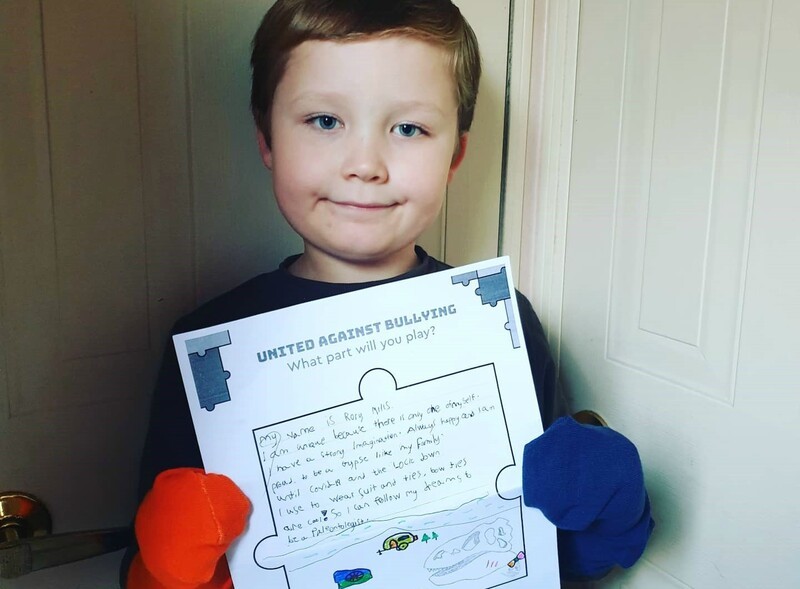 UNITED AGAINST BULLYING
What part will you play?
My name is Rory Mills.
I am unique because there is only one of myself.
I have a strong Imagination. Always happy and I am
proud to be a gypse like my family.
until covid19 and the Lock down
I use to wear suit and ties. bow ties
are cool! So I can follow my dreams to
be a Paleontologist.